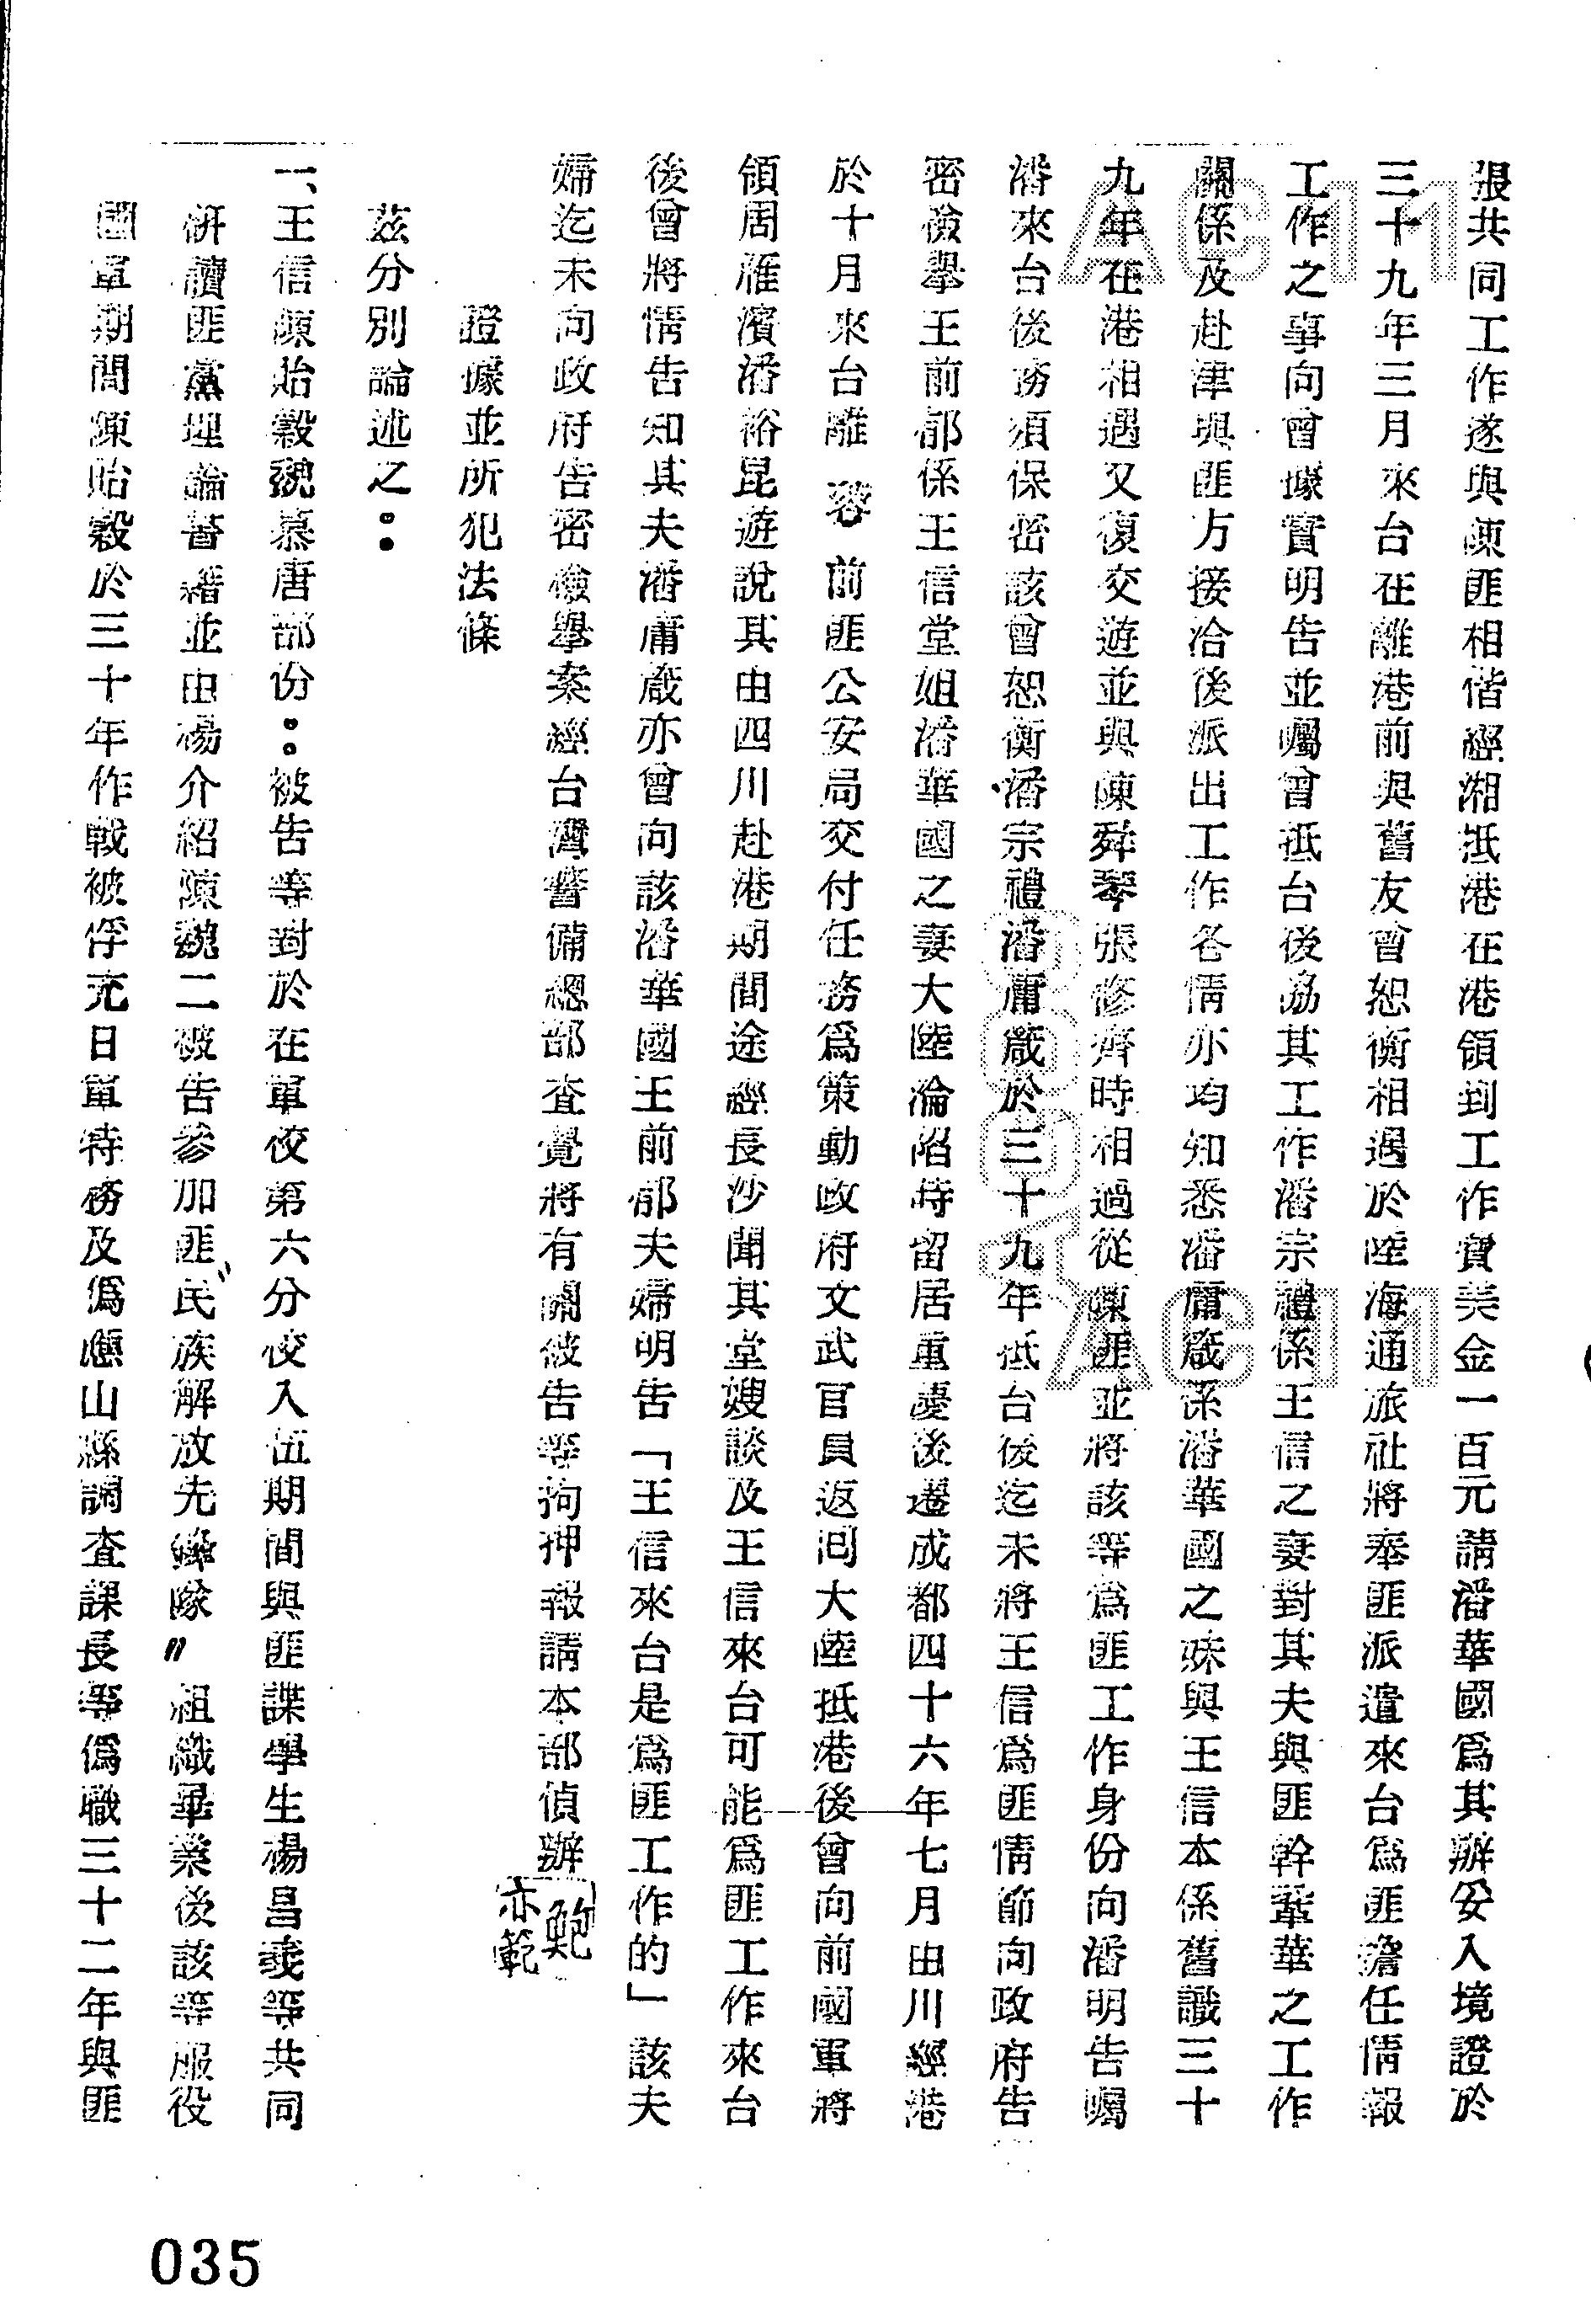 張共同工作遂與陳匪相偕經湘抵港在港領到工作費美金一百元請潘華國為其辦妥入境證於
三十九年三月來台在離港前與舊友曾恕衡相遇於陸海通旅社將奉匪派遣來台為匪擔任情報
工作之事向曾據實明告並囑曾抵台後協其工作潘宗禮係王信之妻對其夫與匪幹鞏華之工作
關係及赴津與匪方接洽後派出工作各情亦均知悉潘庸箴係潘華國之妹與王信本係舊識三十
九年在港相遇又復交遊並與陳舜琴張修齊時相過從陳匪並將該等為匪工作身份向潘明告囑
潘來台後務須保密該曾恕衡潘宗禮潘庸箴於三十九年抵台後迄未將王信為匪情節向政府告
密檢舉王前郁係王信堂姐潘華國之妻大陸淪陷時留居重慶後遷成都四十六年七月由川經港
於十月來台離蓉前匪公安局交付任務為策動政府文武官員返回大陸抵港後曾向前國軍將
領周雁濱潘裕昆遊說其由四川赴港期間途經長沙聞其堂嫂談及王信來台可能為匪工作來台
後曾將情告知其夫潘庸箴亦曾向該潘華國王前郁夫婦明告「王信來台是為匪工作的」該夫
婦迄未向政府告密檢舉案經台灣警備總部查覺將有關被告等拘押報請本部偵辦
鮑亦範
證據並所犯法條
茲分別論述之：
一、王信陳貽穀魏慕唐部份：被告等對於在軍校第六分校入伍期間與匪諜學生楊昌羲等共同
研讀匪黨理論書籍並由楊介紹陳魏二被告參加匪〝民族解放先鋒隊〞組織畢業後該等服役
國軍期間陳貽穀於三十年作戰被俘充日軍特務及偽應山縣調查課長等偽職三十二年與匪
035
AC11
AC11